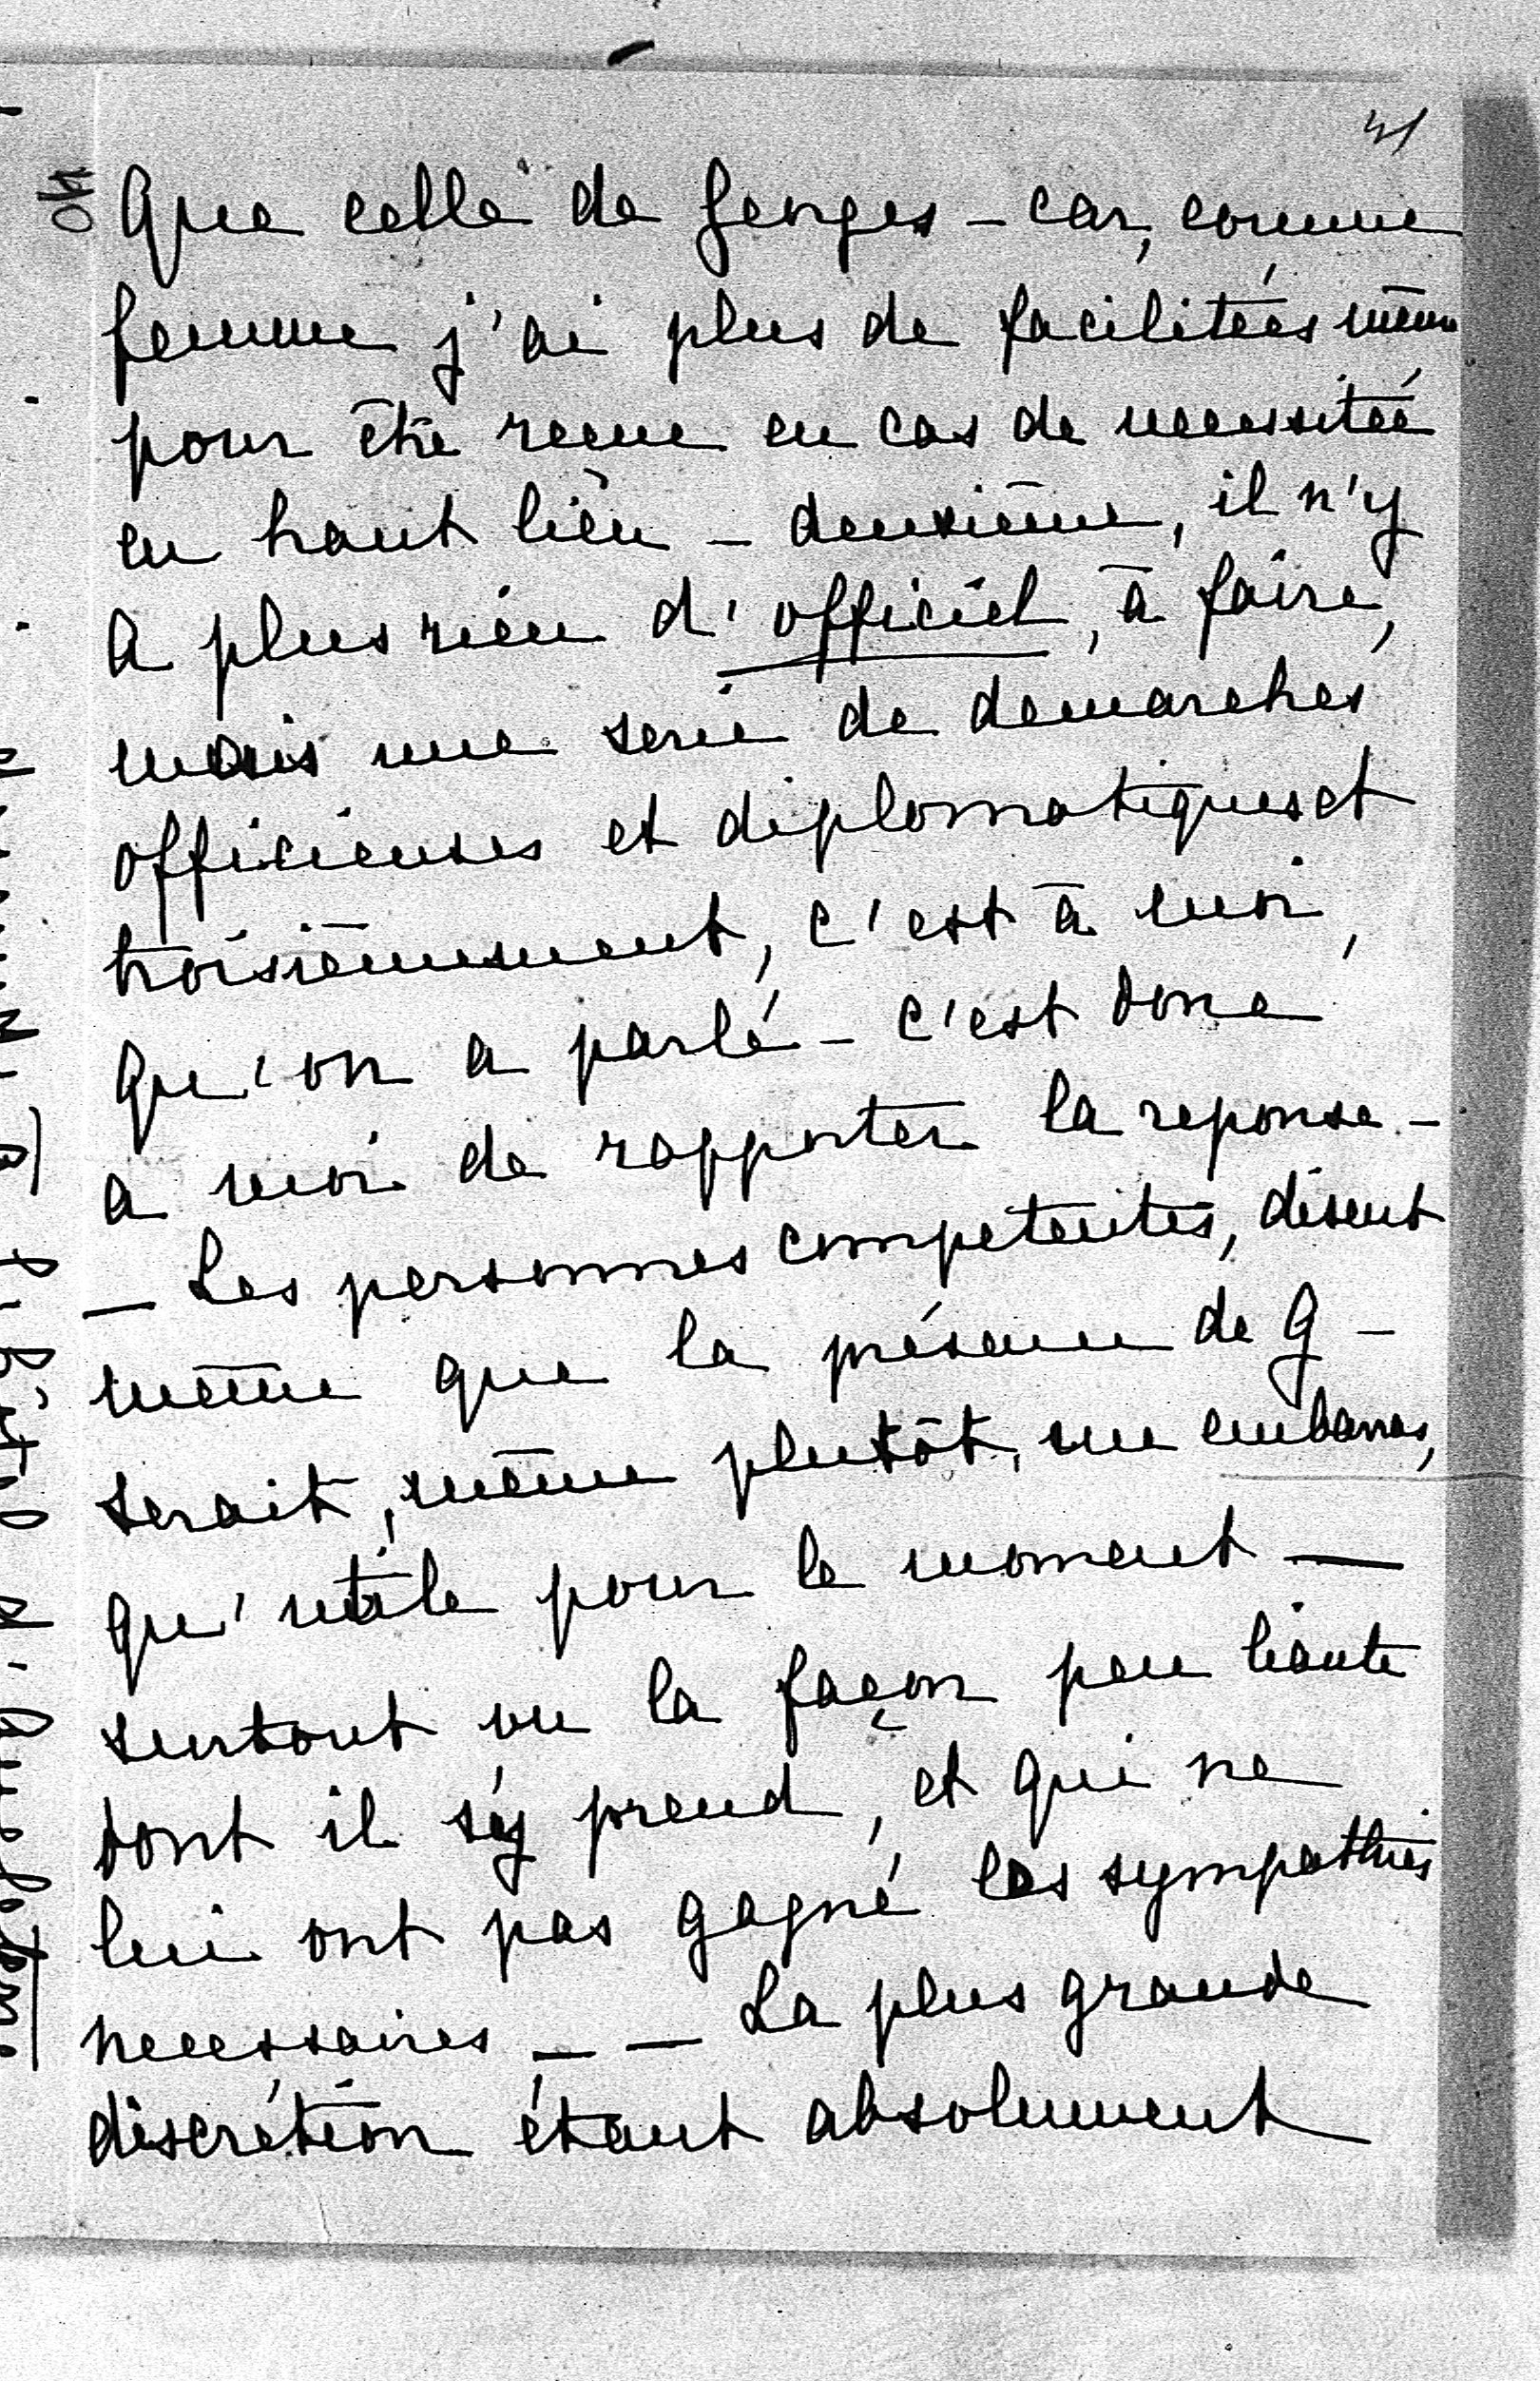 41
Que celle de Georges – car, comme
femme j'ai plus de facilitées même
pour être recue en cas de necessitée
en haut lieu – deuxième, il n'y
a plus rien d'officiel, à faire,
mais une serie de demarches
officieuses et diplomatiques et
troisièmement, c'est à moi,
qu'on a parlé – c'est donc
a moi de rapporter la reponse –
– Les personnes competentes, disent
même que la présence de G –
serait, même plutôt, un embarras,
qu'utile pour le moment —
surtout vu la façon peu liante
dont il s'y prend, et qui ne
lui ont pas gagné les sympathies
necessaires – — La plus grande
discrétion étant absolument